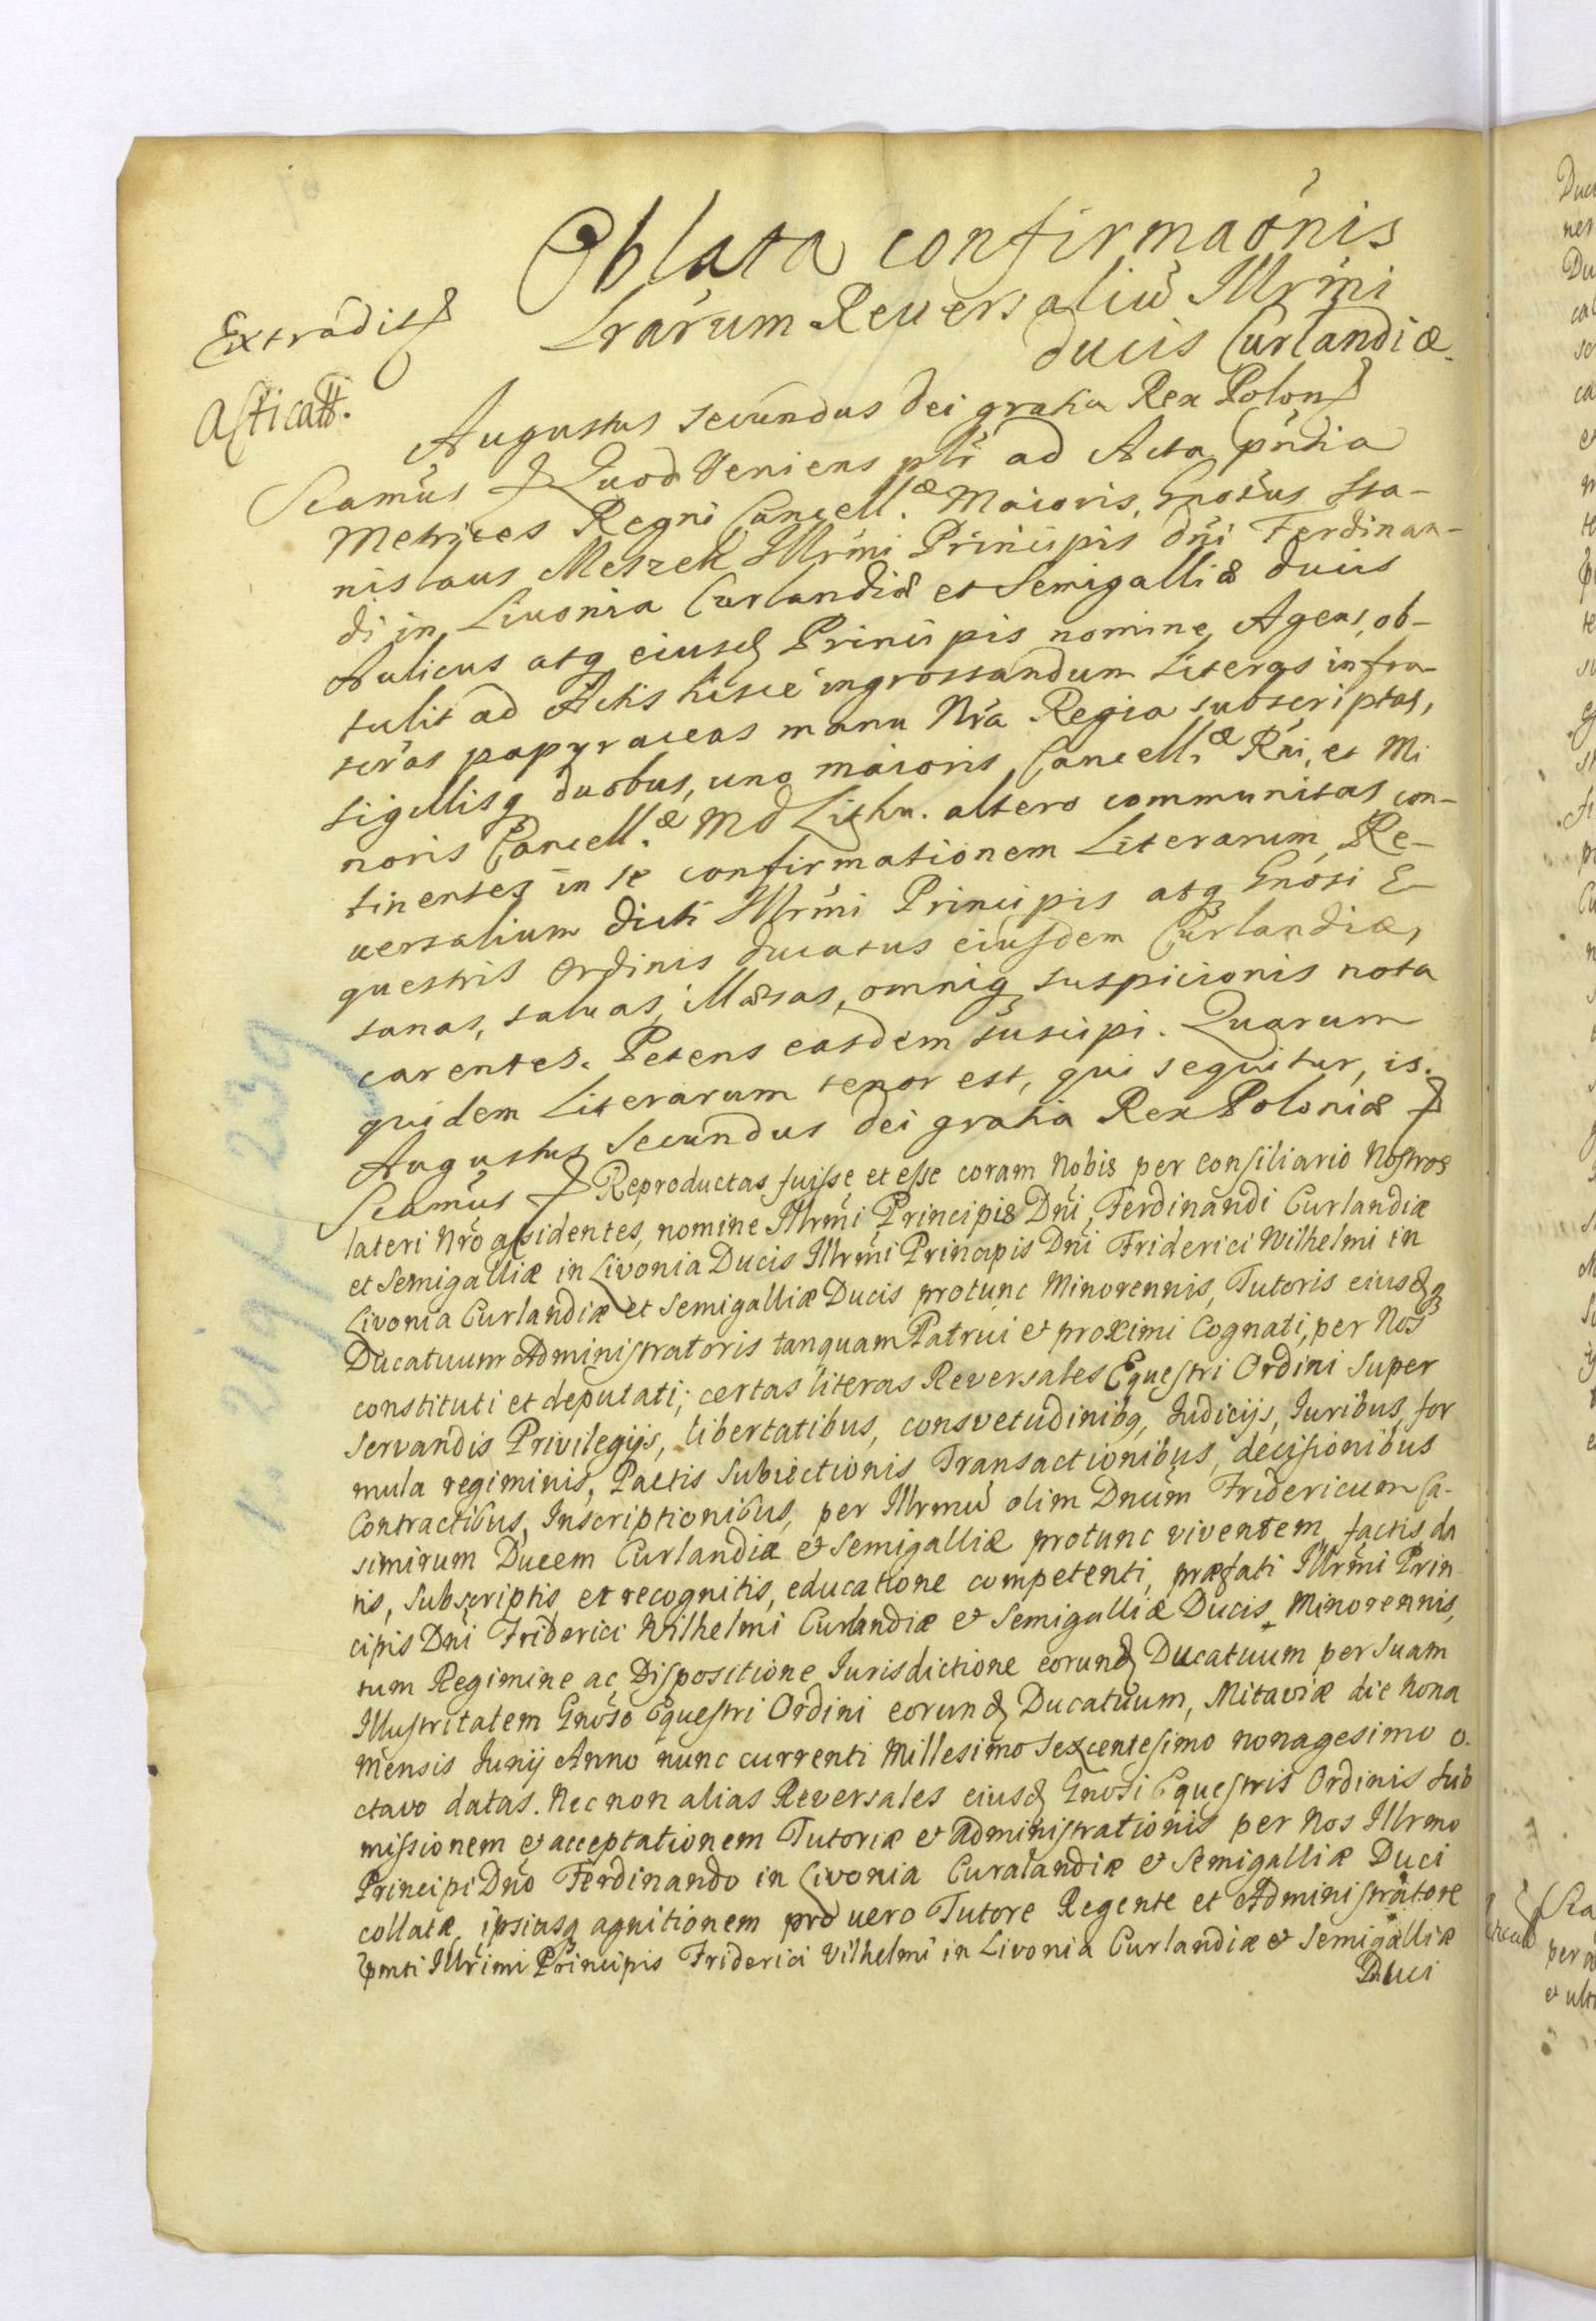 Oblata confirmaónis
Lrárum Reuersaliu͂ Illrmi
ducis Curlandiæ
Extradit
Asticatt.
Augustus secundus dei gratia Rex Polon
Scamus Quod Veniens plr ad Acta pńtia
Metrices Regni Cancell.æ Maioris, Gnosus Sta-
nislaus Meszek Illrmi Principis dńi Ferdinan-
di in Liuonia Curlandiæ et Semigalliæ ducis
Aulicus atq eiusd Principis nomine, Agens, ob-
tulit ad Actis hisce ingrossandum Literas infra-
scr̃as papyraceas manu Nra Regia subscriptas,
sigillisq duobus, uno maioris Cancell.æ Rńi, et Mi
noris Cancell.æ M d Lithu. altero communitas con-
tinentes in se confirmationem Literarum Re-
uersalium dicti Illrmi Principis atq Gnósi E-
questris Ordinis ducatus eiusdem Curlandiæ,
sanas, saluas, illæsas, omniq suspicionis nota
carentes. Petens easdem suscipi. Quarum
quidem Literarum tenor est, qui sequitur, is.
Augustus Secundus dei gratia Rex Poloniæ
Scamus Reproductas fuisse et esse coram Nobis per Consiliario Nostros
lateri Nro assidentes, nomine Illrmi Principis Dńi, Ferdinandi Curlandiæ
et Semigalliæ in Livonia Ducis Illrmi Principis Dńi Friderici Wilhelmi in
Livonia Curlandiæ et Semigalliæ Ducis protunc Minorennis, Tutoris eiusdq
Ducatuum Administratoris tanquam Patrui et proximi Cognati, per Nos
constituti et deputati; certas literas Reversales Equestri Ordini super
servandis Privilegijs, libertatibus, consvetudinibq, Iudicijs, Iuribus, for
mula regiminis, Pactis Subiectionis Transactionibus, decisionibus
Contractibus, Inscriptionibus, per Illrmu͂ olim Dnum Fridericum Ca-
simirum Ducem Curlandiæ et Semigalliæ protunc viventem factis da
tis, subscriptis et recognitis, educatione competenti, præfati Illrmi Prin-
cipis Dńi Friderici Wilhelmi Curlandiæ et Semigalliæ Ducis Minorennis,
tum Regimine ac Dispositione Iurisdictione eorund Ducatuum per Suam
Illustritatem Gnoso Equestri Ordini eorund Ducatuum, Mitaviæ die nona
mensis Iunij Anno nunc currenti Millesimo Sexcentesimo nonagesimo o-
ctavo datas. Nec non alias Reversales eiusd Gnosi Equestris Ordinis sub
missionem et acceptationem Tutoriæ et Administrationis per Nos Illrmo
Principi Dńo Ferdinando in Livonia Curalandiæ et Semigalliæ Duci
collatæ, ipsiusq agnitionem pro uero Tutore Regente et Administratore
Illrimi Principis Friderici Vilhelmi in Livonia Curlandiæ et Semigalliæ
Duci